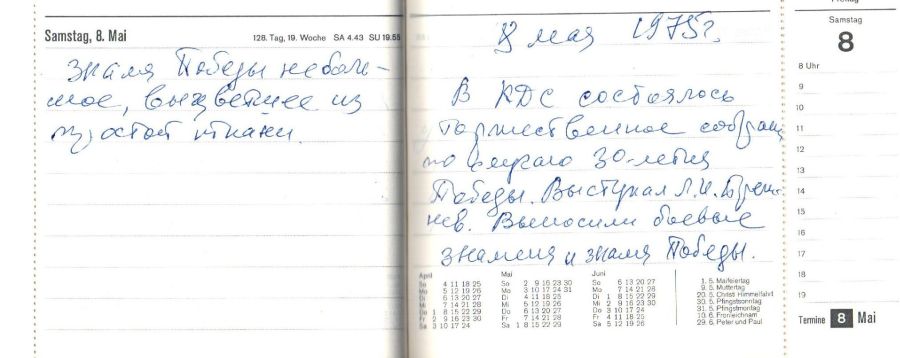 Samstag, 8. Mai
128. Tag, 19. Woche SA 4.43 SU 19.55
Знамя Победы неболь-
шое, выцветшее из
простой ткани.
8 мая 1975г.
В КДС состоялось
торжественное собрание
по случаю 30-летия
Победы. Выступал Л.И. Бреж-
нев. Выносили боевые
знамена и знамя Победы.
April
So 4 11 18 25
Mo 5 12 19 26
Di 6 13 20 27
Mi 7 14 21 28
Do 1 8 15 22 29
Fr 2 9 16 23 30
Sa 3 10 17 24
Mai
So 2 9 16 23 30
Mo 3 10 17 24 31
Di 4 11 18 25
Mi 5 12 19 26
Do 6 13 20 27
Fr 7 14 21 28
Sa 1 8 15 22 29
Juni
So 6 13 20 27
Mo 7 14 21 28
Di 1 8 15 22 29
Mi 2 9 16 23 30
Do 3 10 17 24
Fr 4 11 18 25
Sa 5 12 19 26
1. 5. Maifeiertag
9. 5. Muttertag
20. 5. Christi Himmelfahrt
30. 5. Pfingstsonntag
31. 5. Pfingstmontag
10. 6. Fronleichnam
29. 6. Peter und Paul
Samstag
8
8 Uhr
9
10
11
12
13
14
15
16
17
18
19
Termine 8 Mai